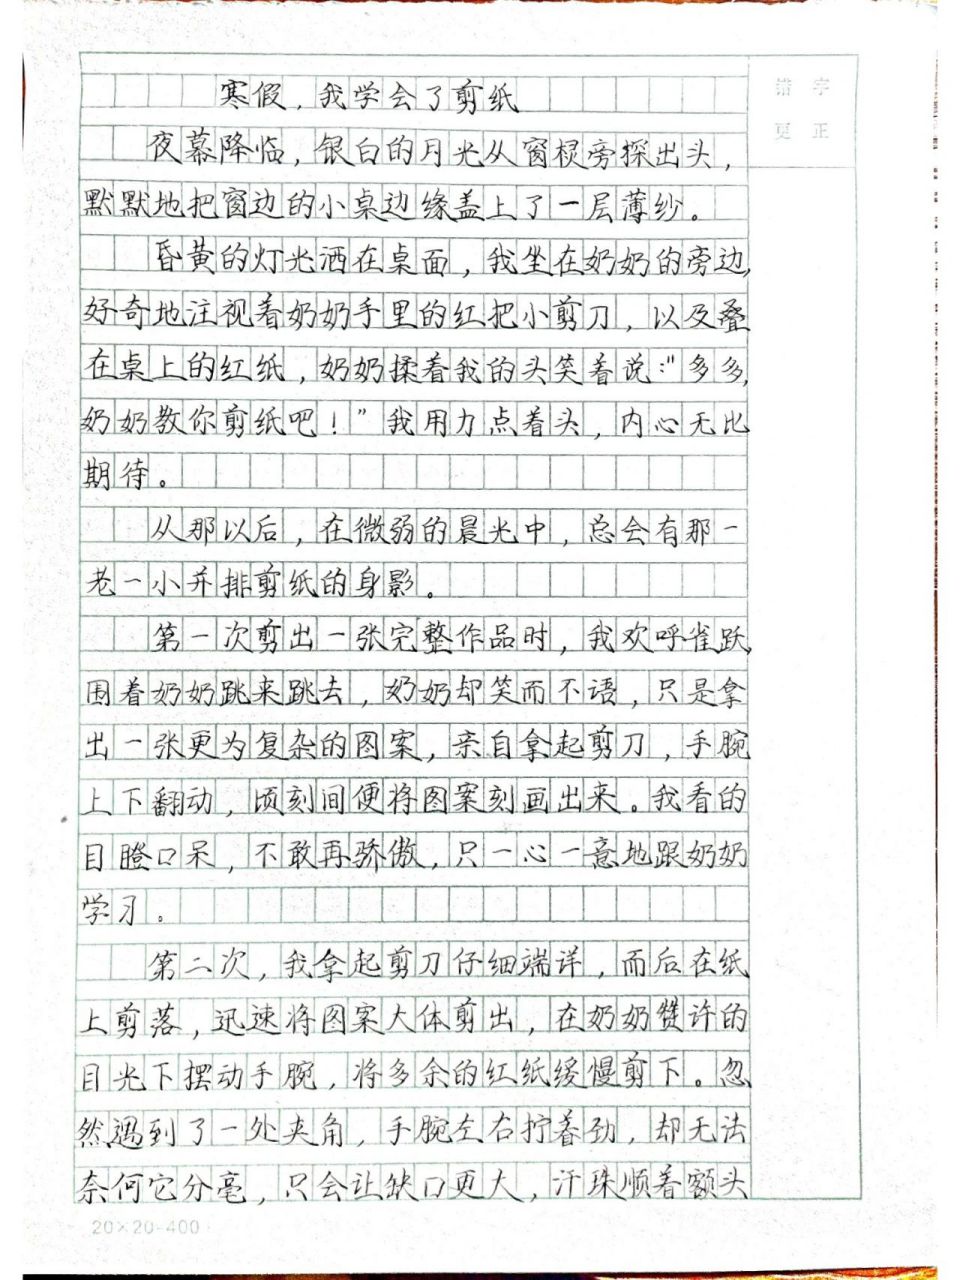 寒假，我学会了剪纸
错字
更正
夜幕降临，银白的月光从窗棂旁探出头，
默默地把窗边的小桌边缘盖上了一层薄纱。
昏黄的灯光洒在桌面，我坐在奶奶的旁边，
好奇地注视着奶奶手里的红把小剪刀，以及叠
在桌上的红纸，奶奶揉着我的头笑着说：“多多，
奶奶教你剪纸吧！”我用力点着头，内心无比
期待。
从那以后，在微弱的晨光中，总会有那一
老一小并排剪纸的身影。
第一次剪出一张完整作品时，我欢呼雀跃，
围着奶奶跳来跳去，奶奶却笑而不语，只是拿
出一张更为复杂的图案，亲自拿起剪刀，手腕
上下翻动，顷刻间便将图案刻画出来。我看的
目瞪口呆，不敢再骄傲，只一心一意地跟奶奶
学习。
第二次，我拿起剪刀仔细端详，而后在纸
上剪落，迅速将图案大体剪出，在奶奶赞许的
目光下摆动手腕，将多余的红纸缓慢剪下。忽
然遇到了一处夹角，手腕左右拧着劲，却无法
奈何它分毫，只会让缺口更大，汗珠顺着额头
20×20=400